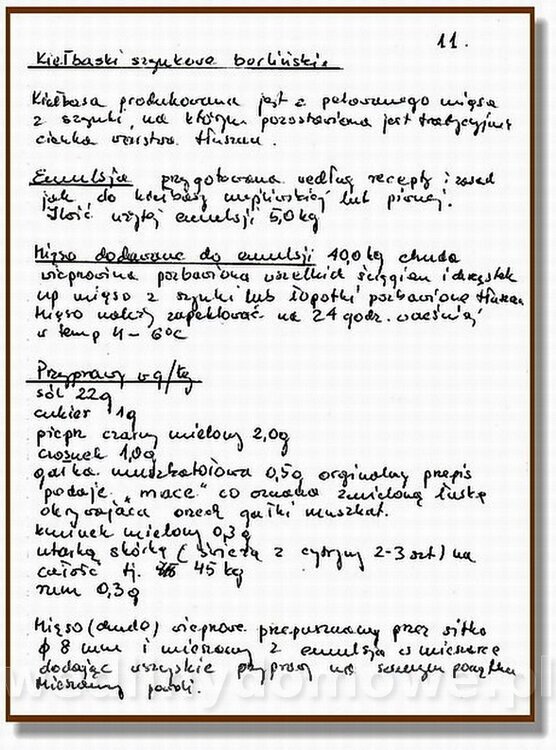 11.
Kiełbaski szynkowe berlińskie
Kiełbasa produkowana jest z peklowanego mięsa
z szynki, na którym pozostawiona jest tradycyjnie
cienka warstwa tłuszczu.
Emulsja przygotowana według recepty i zasad
jak do kiełbasy myśliwskiej lub piwnej.
Ilość użytej emulsji 5,0 kg
Mięso dodawane do emulsji 40,0 kg chuda
wieprzowina pozbawiona wszelkich ścięgien i chrząstek
np mięso z szynki lub łopatki pozbawione tłuszczu
Mięso należy zapeklować na 24 godz. wcześniej
w temp 4 - 6°C
Przyprawy w g/kg
sól 22g
cukier 1g
pieprz czarny mielony 2,0g
czosnek 1,0g
gałka muszkatołowa 0,5g orginalny przepis
podaje "mace" co oznacza zmieloną łuskę
okrywająca orzech gałki muszkat.
kminek mielony 0,3g
utartą skórkę (świeżą z cytryny 2-3 szt) na
całość tj. 45 kg
rum 0,3g
Mięso (chude) wieprzowe przepuszczamy przez sitko
ϕ 8 mm i mieszamy z emulsją w mieszarce
dodając wszystkie przyprawy na samym początku
Mieszamy powoli.
wedlinydomowe.pl